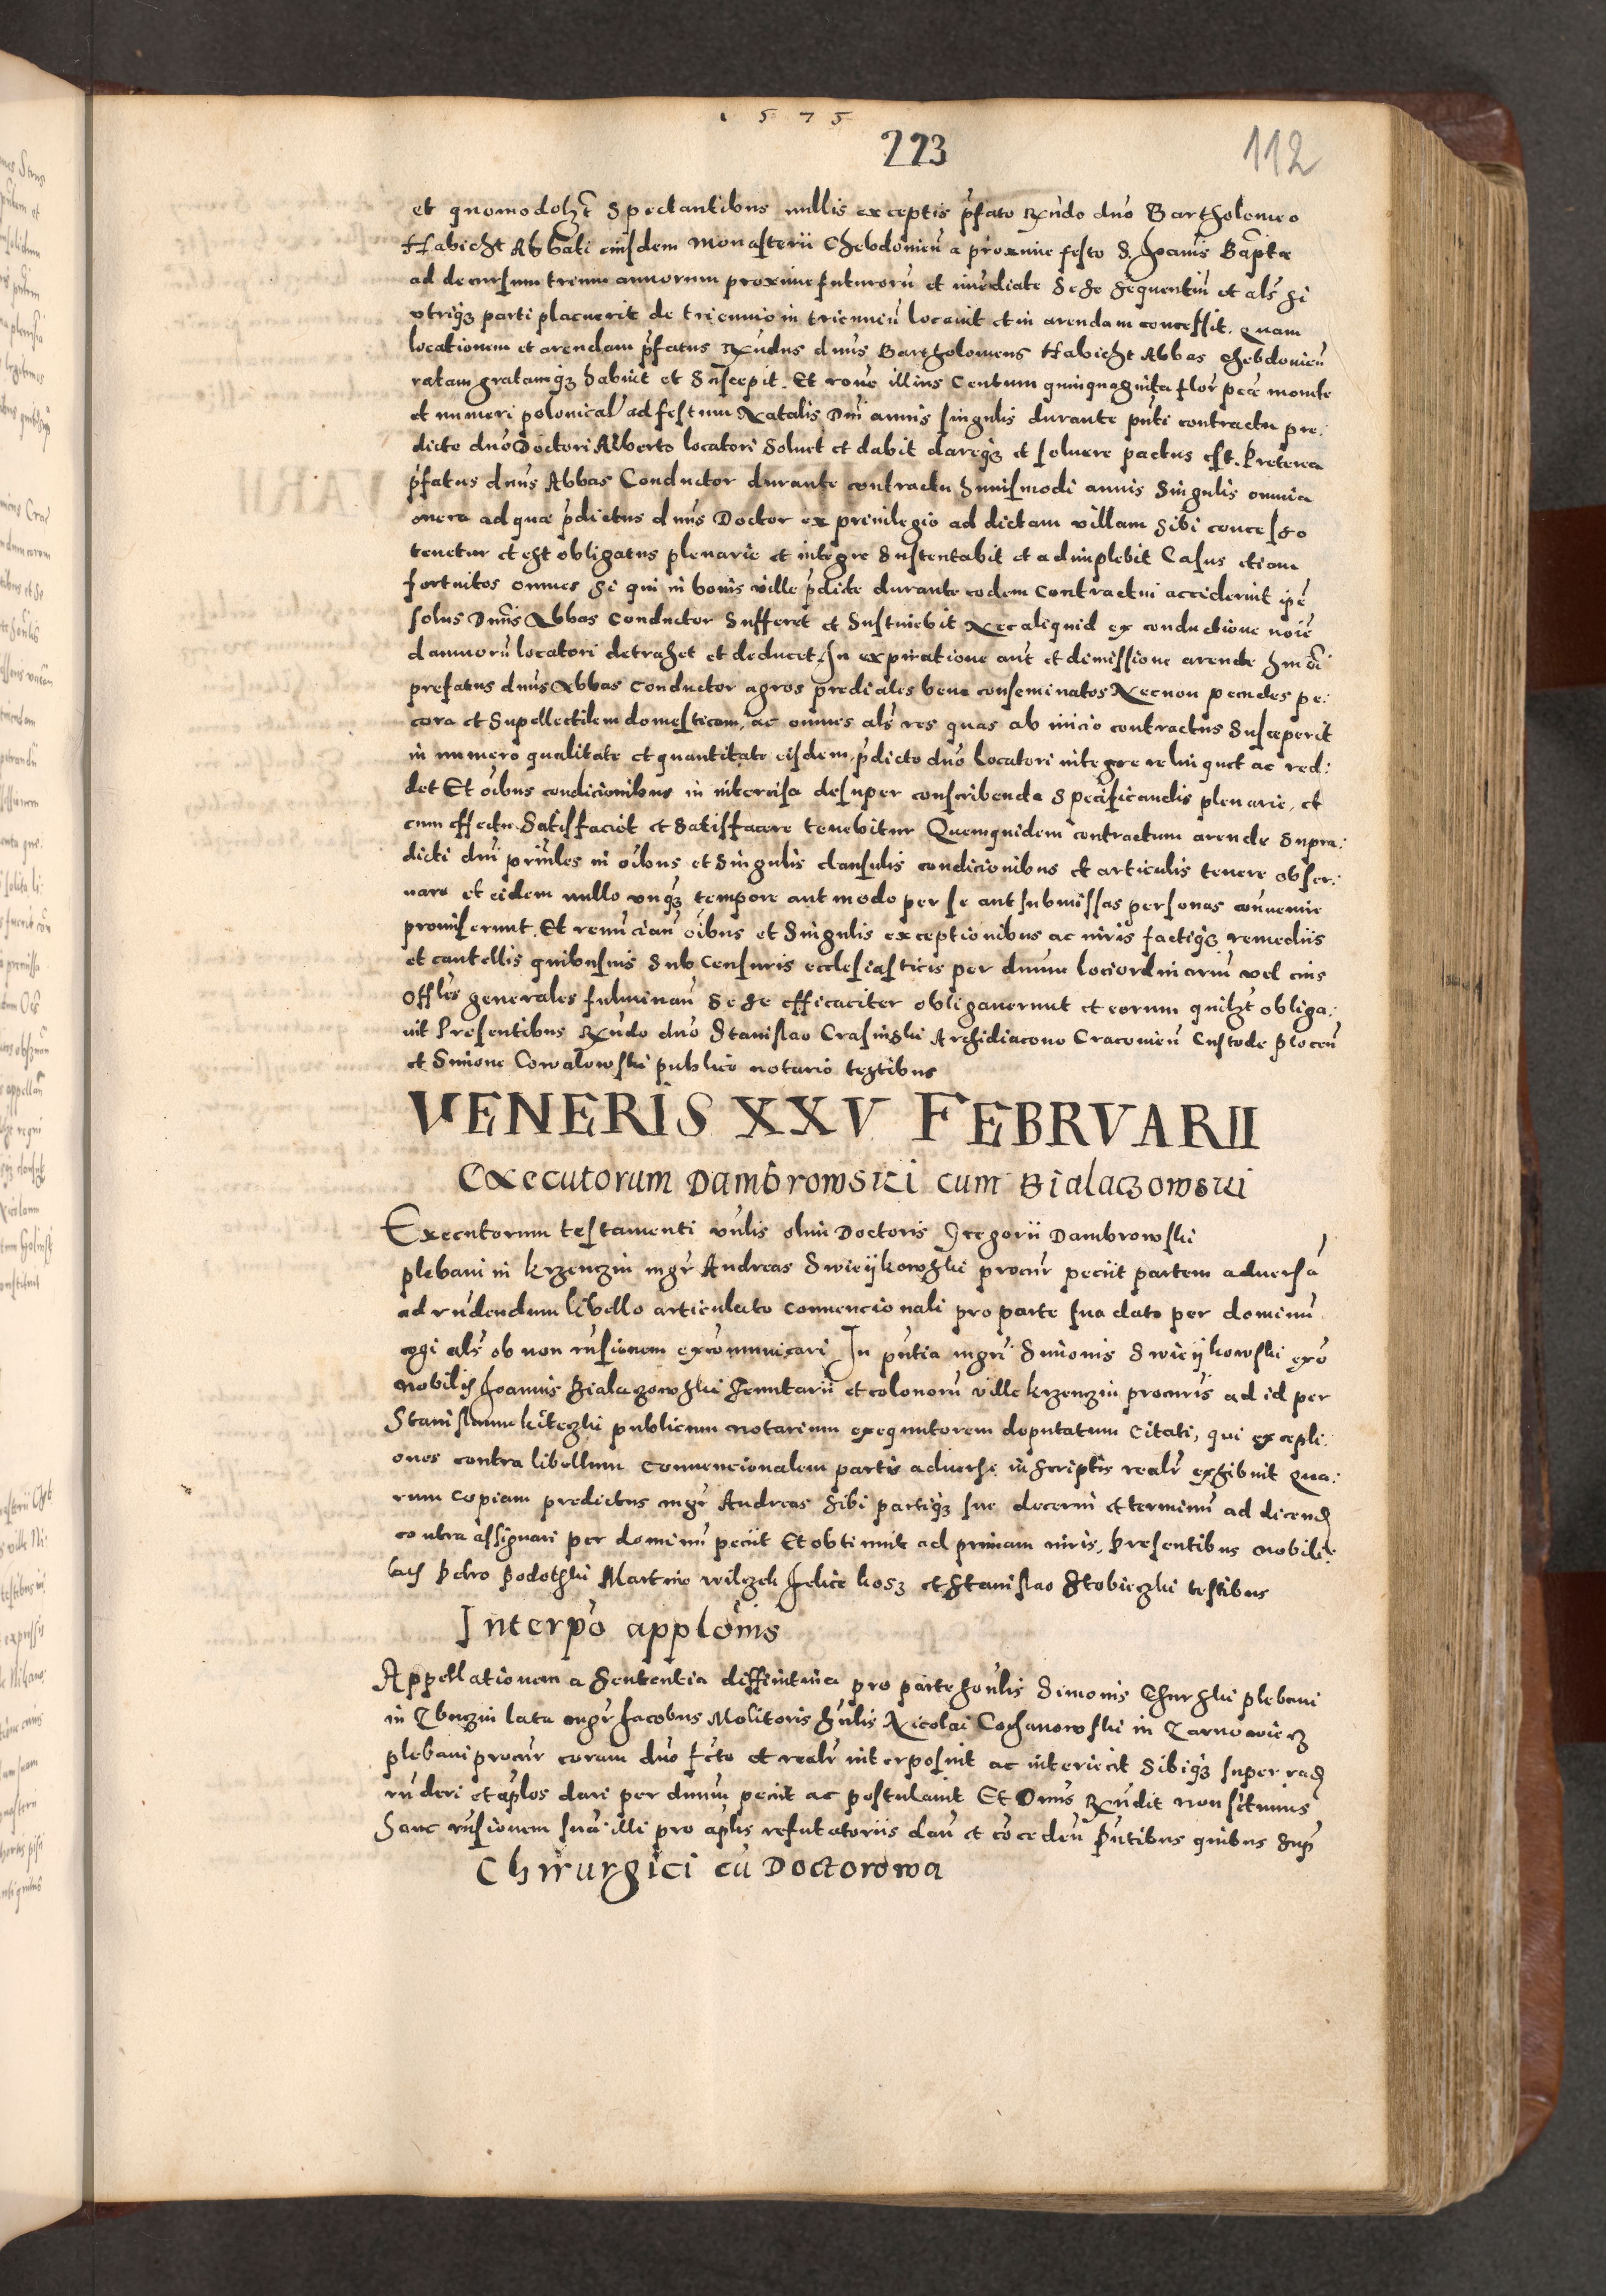 1575
223
112
et quomodolzt spectantibus nullis exceptis pfato Rndo dno Bartholomeo
Habicht Abbati eiusdem Monasterii Chebdouien a proxime festo S. Joanis Baptæ
ad decursum trium annorum proxime futuroru et imediate sese sequentiu et als si
utriqz parti placuerit de triennio in trienniu locavit et in arendam concessit. Quam
locationem et arendam pfatus Rndus dnus Bartholomeus Habicht Abbas Chebdouien
ratam gratamqz habuit et suscepit. Et rone illius Centum quinquaginta flor pece monete
et numeri polonical ad festum Natalis Dni annis singulis durante pnti contractu pre:
dicto dno Doctori Alberto locatori solvet et dabit dareqz et solvere pactus est. Preterea
pfatus dnus Abbas Conductor durante contractu huiusmodi annis singulis omnia
onera ad quæ pdictus dnus Doctor ex privilegio ad dictam villam sibi concesso
tenetur et est obligatus plenarie et integre sustentabit et adimplebit Casus etiam
fortuitos omnes si qui in bonis ville pdicte durante eodem Contractui acciderint ipe
solus Dnus Abbas Conductor sufferet et sustinebit Nec aliquid ex conductione noie
damnoru locatori detrahet et deducet. In expiratione aut et dimissione arende hmoi
prefatus dnus Abbas Conductor agros prediales bene conseminatos Necnon pecudes pe:
cora et supellectilem domesticam, ac omnes als res quas ab inicio contractus susceperit
in numero qualitate et quantitate eisdem pdicto dno locatori integre relinquet ac red:
det Et oibus condicionibus in intercisa desuper conscribenda specificandis plenarie, et
cum effectu satisfaciet et satisfacere tenebitur Quemquidem contractum arende supra:
dicti dni prinles in oibus et singulis clausulis condicionibus et articulis tenere obser:
uare et eidem nullo unqz tempore aut modo per se aut submissas personas convenire
promiserunt. Et renucian oibus et singulis exceptionibus ac iuris factiqz remediis
et cautellis quibusuis sub Censuris ecclesiasticis per dnum loci ordinariu vel eius
Offles generales fulminan sese efficaciter obligaverunt et eorum quilzt obliga:
uit Presentibus Rndo dno Stanislao Crasinski Archidiacono Cracouien Custode Plocen
et Simone Cowalowski publico notario testibus
VENERIS XXV FEBRVARII
Executorum Dambrowski cum Bialaczowski
Executorum testamenti vnlis olim Doctoris Gregorii Dambrowski
plebani in Krzenczin mgr Andreas Swieijkowski procur peciit partem adversa
ad rndendum libello articulato convencionali pro parte sua dato per dominu
cogi als ob non rnsionem excomunicari In pntia mgri Simonis Swieijkowski exo
Nobilis Joannis Bialaczowski Tenutarii et colonoru ville Krzenczin procuris ad id per
Stanislaum Kiteczki publicum notarium exequutorem deputatum Citati, qui excepti:
ones contra libellum convencionalem partis adverse in scriptis realr exhibuit Qua:
rum copiam predictus mgr Andreas sibi partiqz sue decerni et terminu ad dicend
contra assignari per dominu peciit Et obtinuit ad primam iuris. Presentibus Nobili:
bus Petro Podotski Martino Wilczek Felice Kosz et Stanislao Stobieczki testibus
Interpo applonis
Appellationem a sententia diffinitiva pro parte honlis Simonis Churski plebani
in lata mgr Jacobus Molitoris hnlis Nicolai Cochanowski in Tarnowiecz
plebani procur coram dno fcto et realr interposuit ac interiecit sibiqz super ead
rnderi et aplos dari per dnum peciit ac postulavit Et Dnus Rndit non
hanc rnsionem sua illi pro aplis refutatoriis dan et coceden Pntibus quibus sup
Chirurgici cu Doctorowa